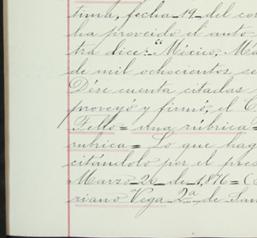 tima, fecha 19 del cor
ha proveido el auto
tra dice: "México, Ma
de mil ochocientos se
Dése cuenta citadas
proveyó y firmó, el C
Tello = una rúbrica =
rubrica = Lo que hag
citándolo por el pres
Marzo 24 de 1,876 = (
riano Vega 2ª de San